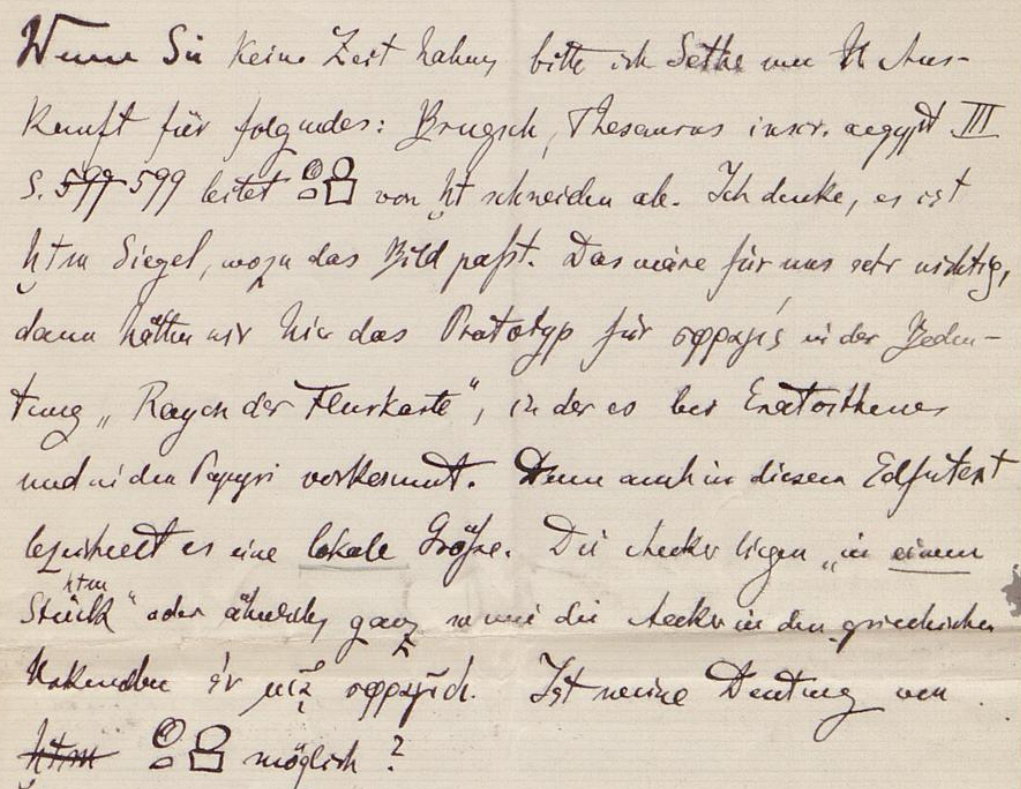 Wenn Sie keine Zeit haben, bitte ich Sethe um Aus-
kunft für folgendes: Brugsch, Thesaurus inscr. aegypt III
S. 599 leitet von ḫt schneiden ab. Ich denke, es ist
ḫtm Siegel, wozu das Bild paßt. Das wäre für uns sehr wichtig,
dann hätten wir hier das Prototyp für σφραγίς in der Bedeu-
tung „Rayon der Flurkarte“, in der es bei Eratosthenes
und in den Papyri vorkommt. Denn auch in diesem Edfutext
bezeichnet es eine lokale Größe. Die Aecker liegen „in einem
ḫtm
Stück“ oder ähnlich, ganz so wie die Aecker in den griechischen
Urkunden ἐν μιᾷ σφραγῖδι. Ist meine Deutung von
ḫtm möglich?